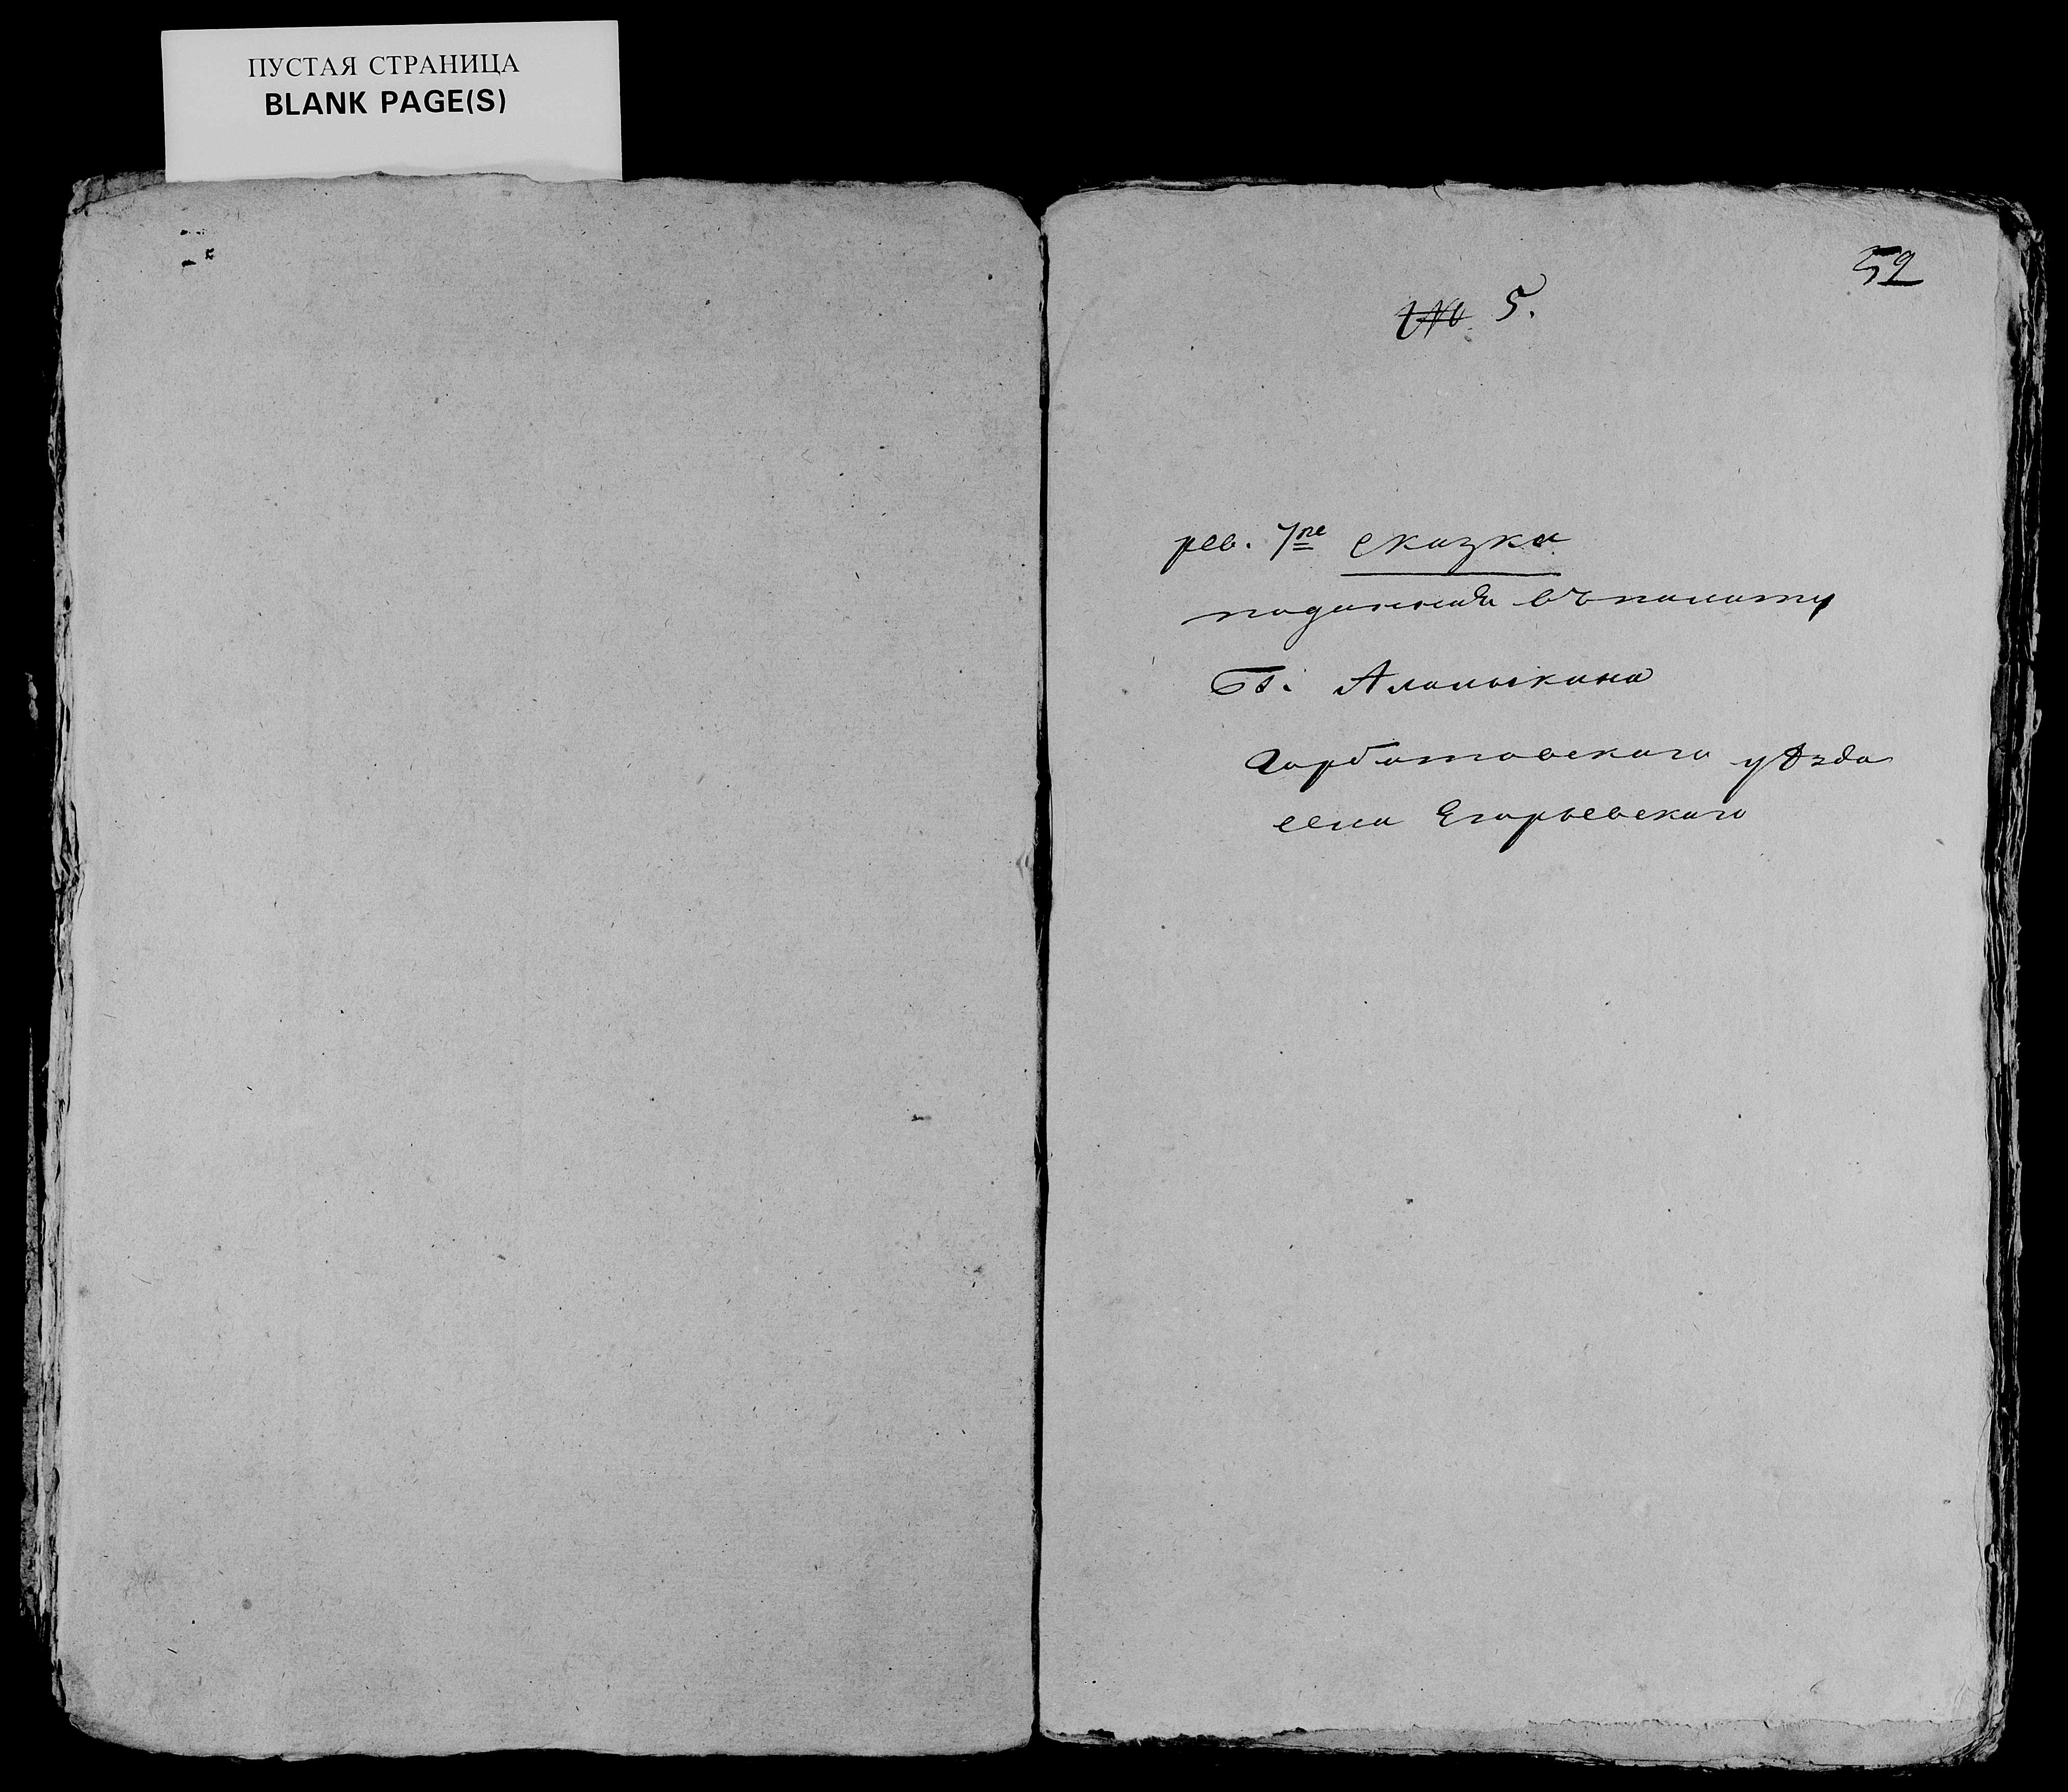 ПУСТАЯ СТРАНИЦА
BLANK PAGE(S)
52
№ 5.
рев. 7ре сказка
поданная въ палату
Г. Алалыкина
Горбатовскаго уѣзда
села Егорьевскаго